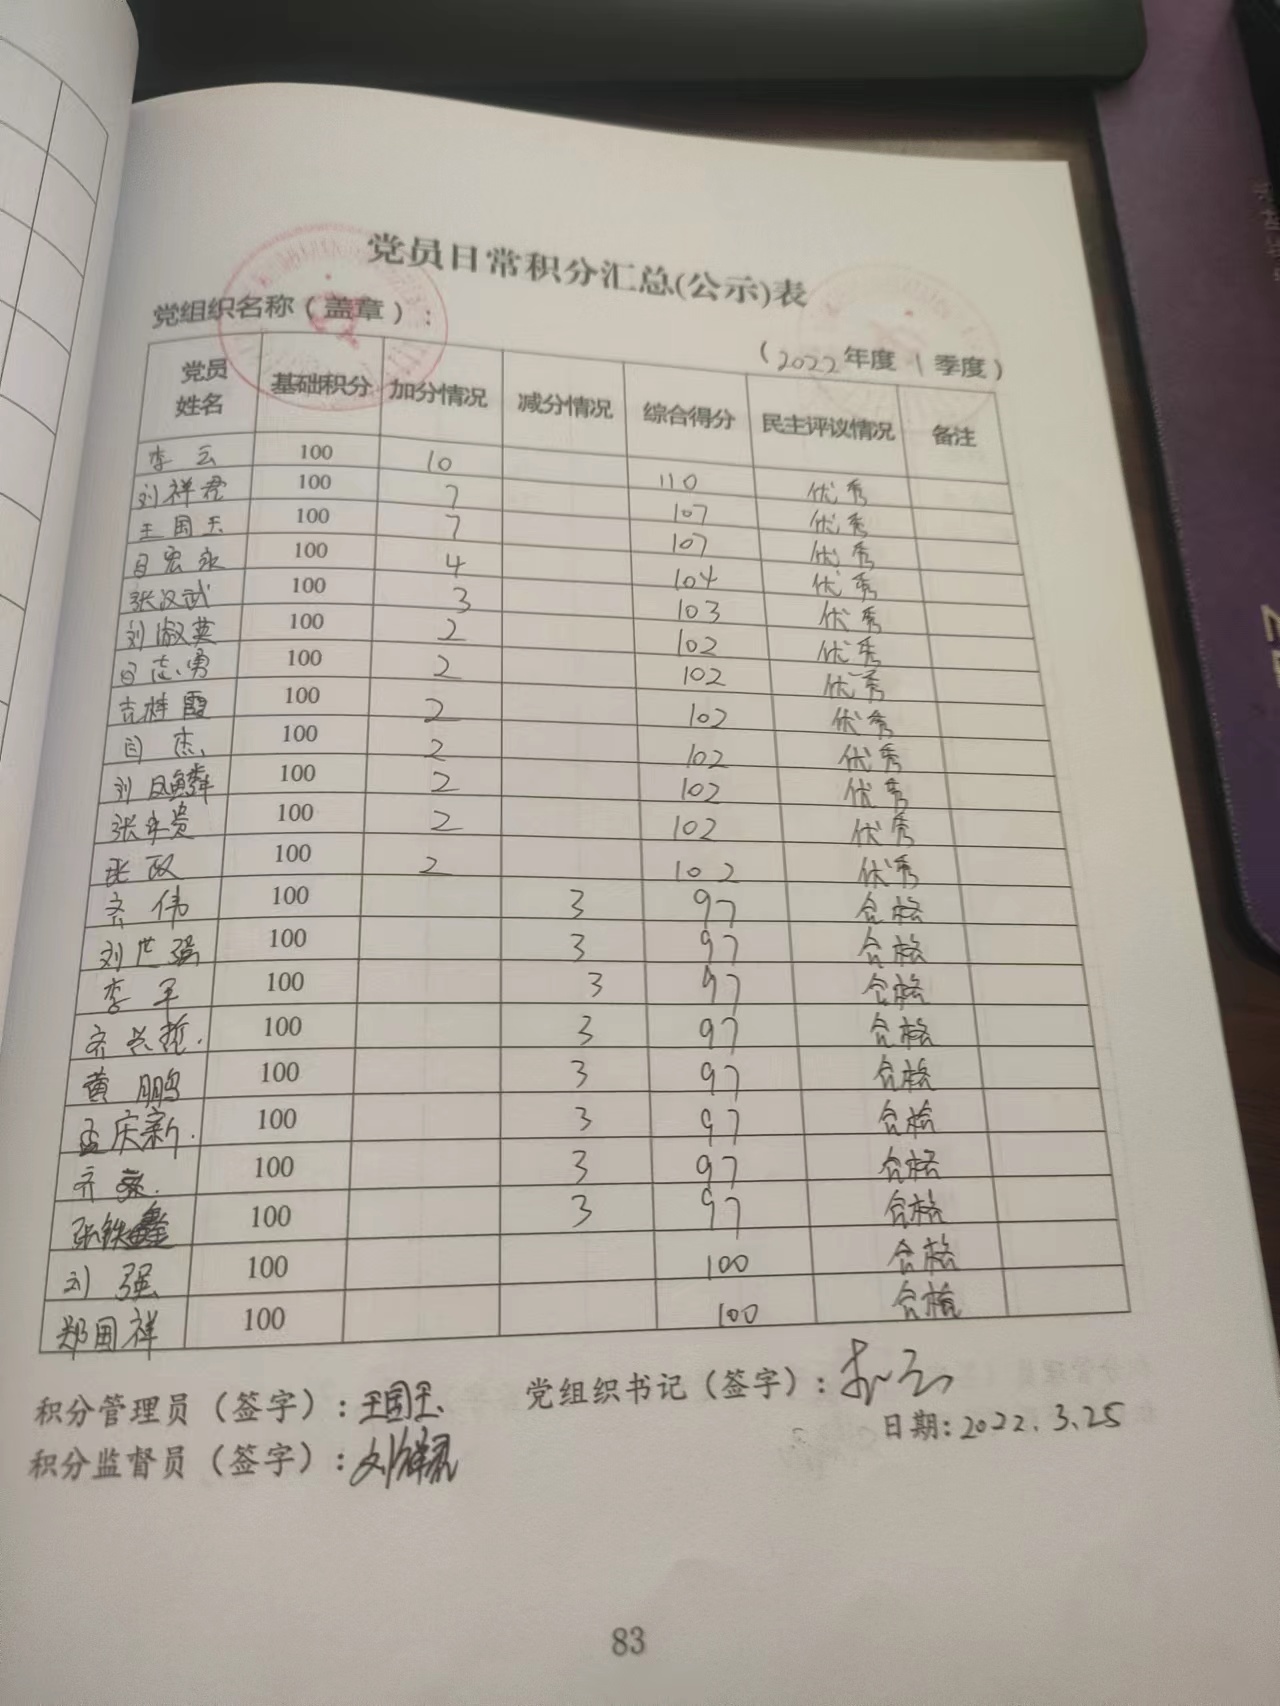 党员日常积分汇总(公示)表
党组织名称（盖章）：
（2022年度 1 季度）
党员姓名 基础积分 加分情况 减分情况 综合得分 民主评议情况 备注
李云 100 10 110 优秀
刘祥君 100 7 107 优秀
王国玉 100 7 107 优秀
宏永 100 4 104 优秀
张汉武 100 3 103 优秀
刘淑英 100 2 102 优秀
志勇 100 2 102 优秀
吉桂霞 100 2 102 优秀
杰 100 2 102 优秀
刘凤麟 100 2 102 优秀
张贵 100 2 102 优秀
张政 100 2 102 优秀
齐伟 100 3 97 合格
刘世强 100 3 97 合格
李军 100 3 97 合格
齐兴 100 3 97 合格
黄鹏 100 3 97 合格
孟庆新 100 3 97 合格
齐 100 3 97 合格
张铁鑫 100 3 97 合格
刘强 100 100 合格
郑国祥 100 100 合格
积分管理员（签字）：王国玉 党组织书记（签字）：李云
日期：2022.3.25
积分监督员（签字）：刘祥君
83